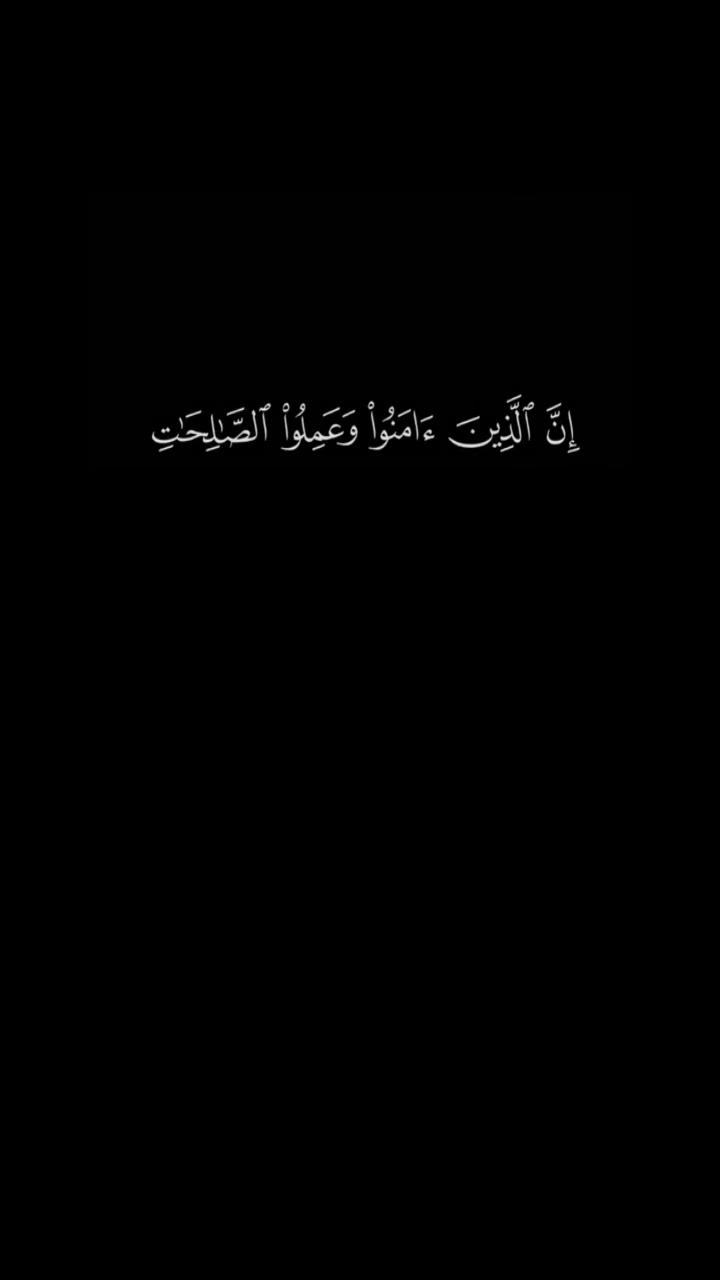 إِنَّ ٱلَّذِينَ ءَامَنُوا۟ وَعَمِلُوا۟ ٱلصَّـٰلِحَـٰتِ